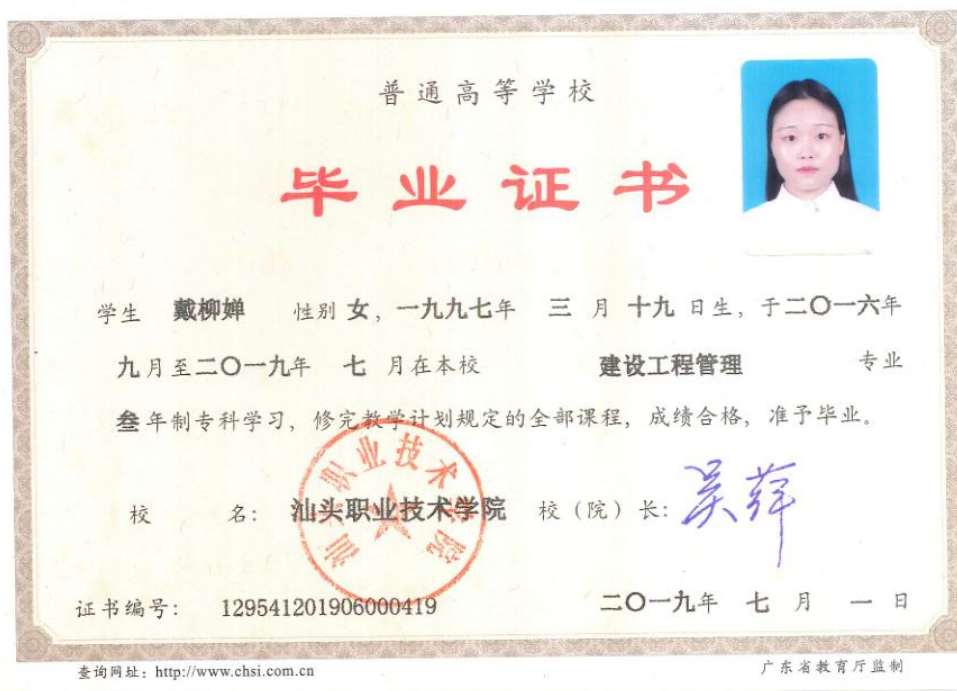 普通高等学校
毕业证书
学生 戴柳婵 性别 女，一九九七年 三 月 十九 日生，于二〇一六年
九月至二〇一九年 七 月在本校 建设工程管理 专业
叁年制专科学习，修完教学计划规定的全部课程，成绩合格，准予毕业。
汕头职业技术学院
校 名： 汕头职业技术学院 校（院）长：
证书编号： 129541201906000419 二〇一九年 七 月 一 日
查询网址：http://www.chsi.com.cn 广东省教育厅监制